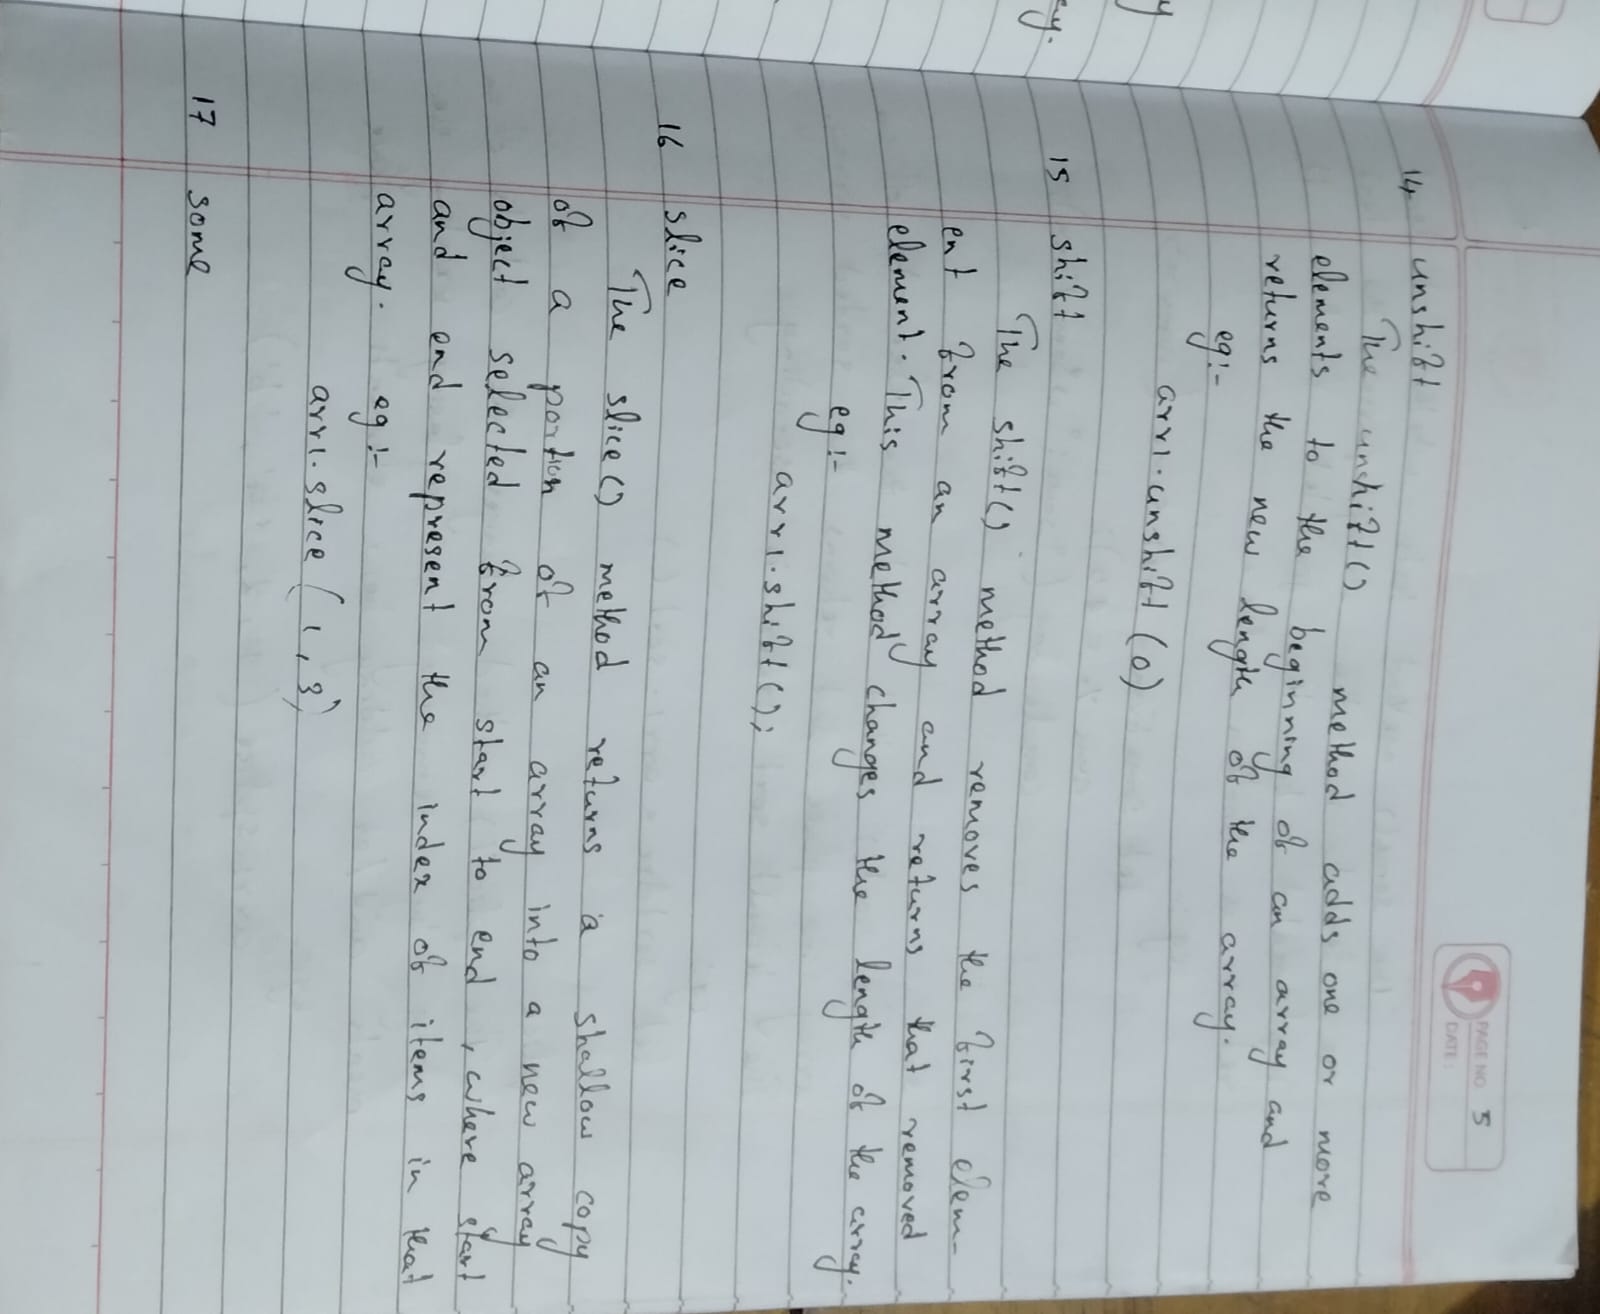 PAGE NO. 5
DATE:
14 unshift
The unshift() method adds one or more
elements to the beginning of an array and
returns the new length of the array.
eg:-
arr1.unshift (0)
15 shift
The shift() method removes the first elem-
ent from an array and returns that removed
element. This method changes the length of the array.
eg:-
arr1.shift();
16 slice
The slice() method returns a shallow copy
of a portion of an array into a new array
object selected from start to end, where start
and end represent the index of items in that
array. eg:-
arr1.slice (1,3)
17 some